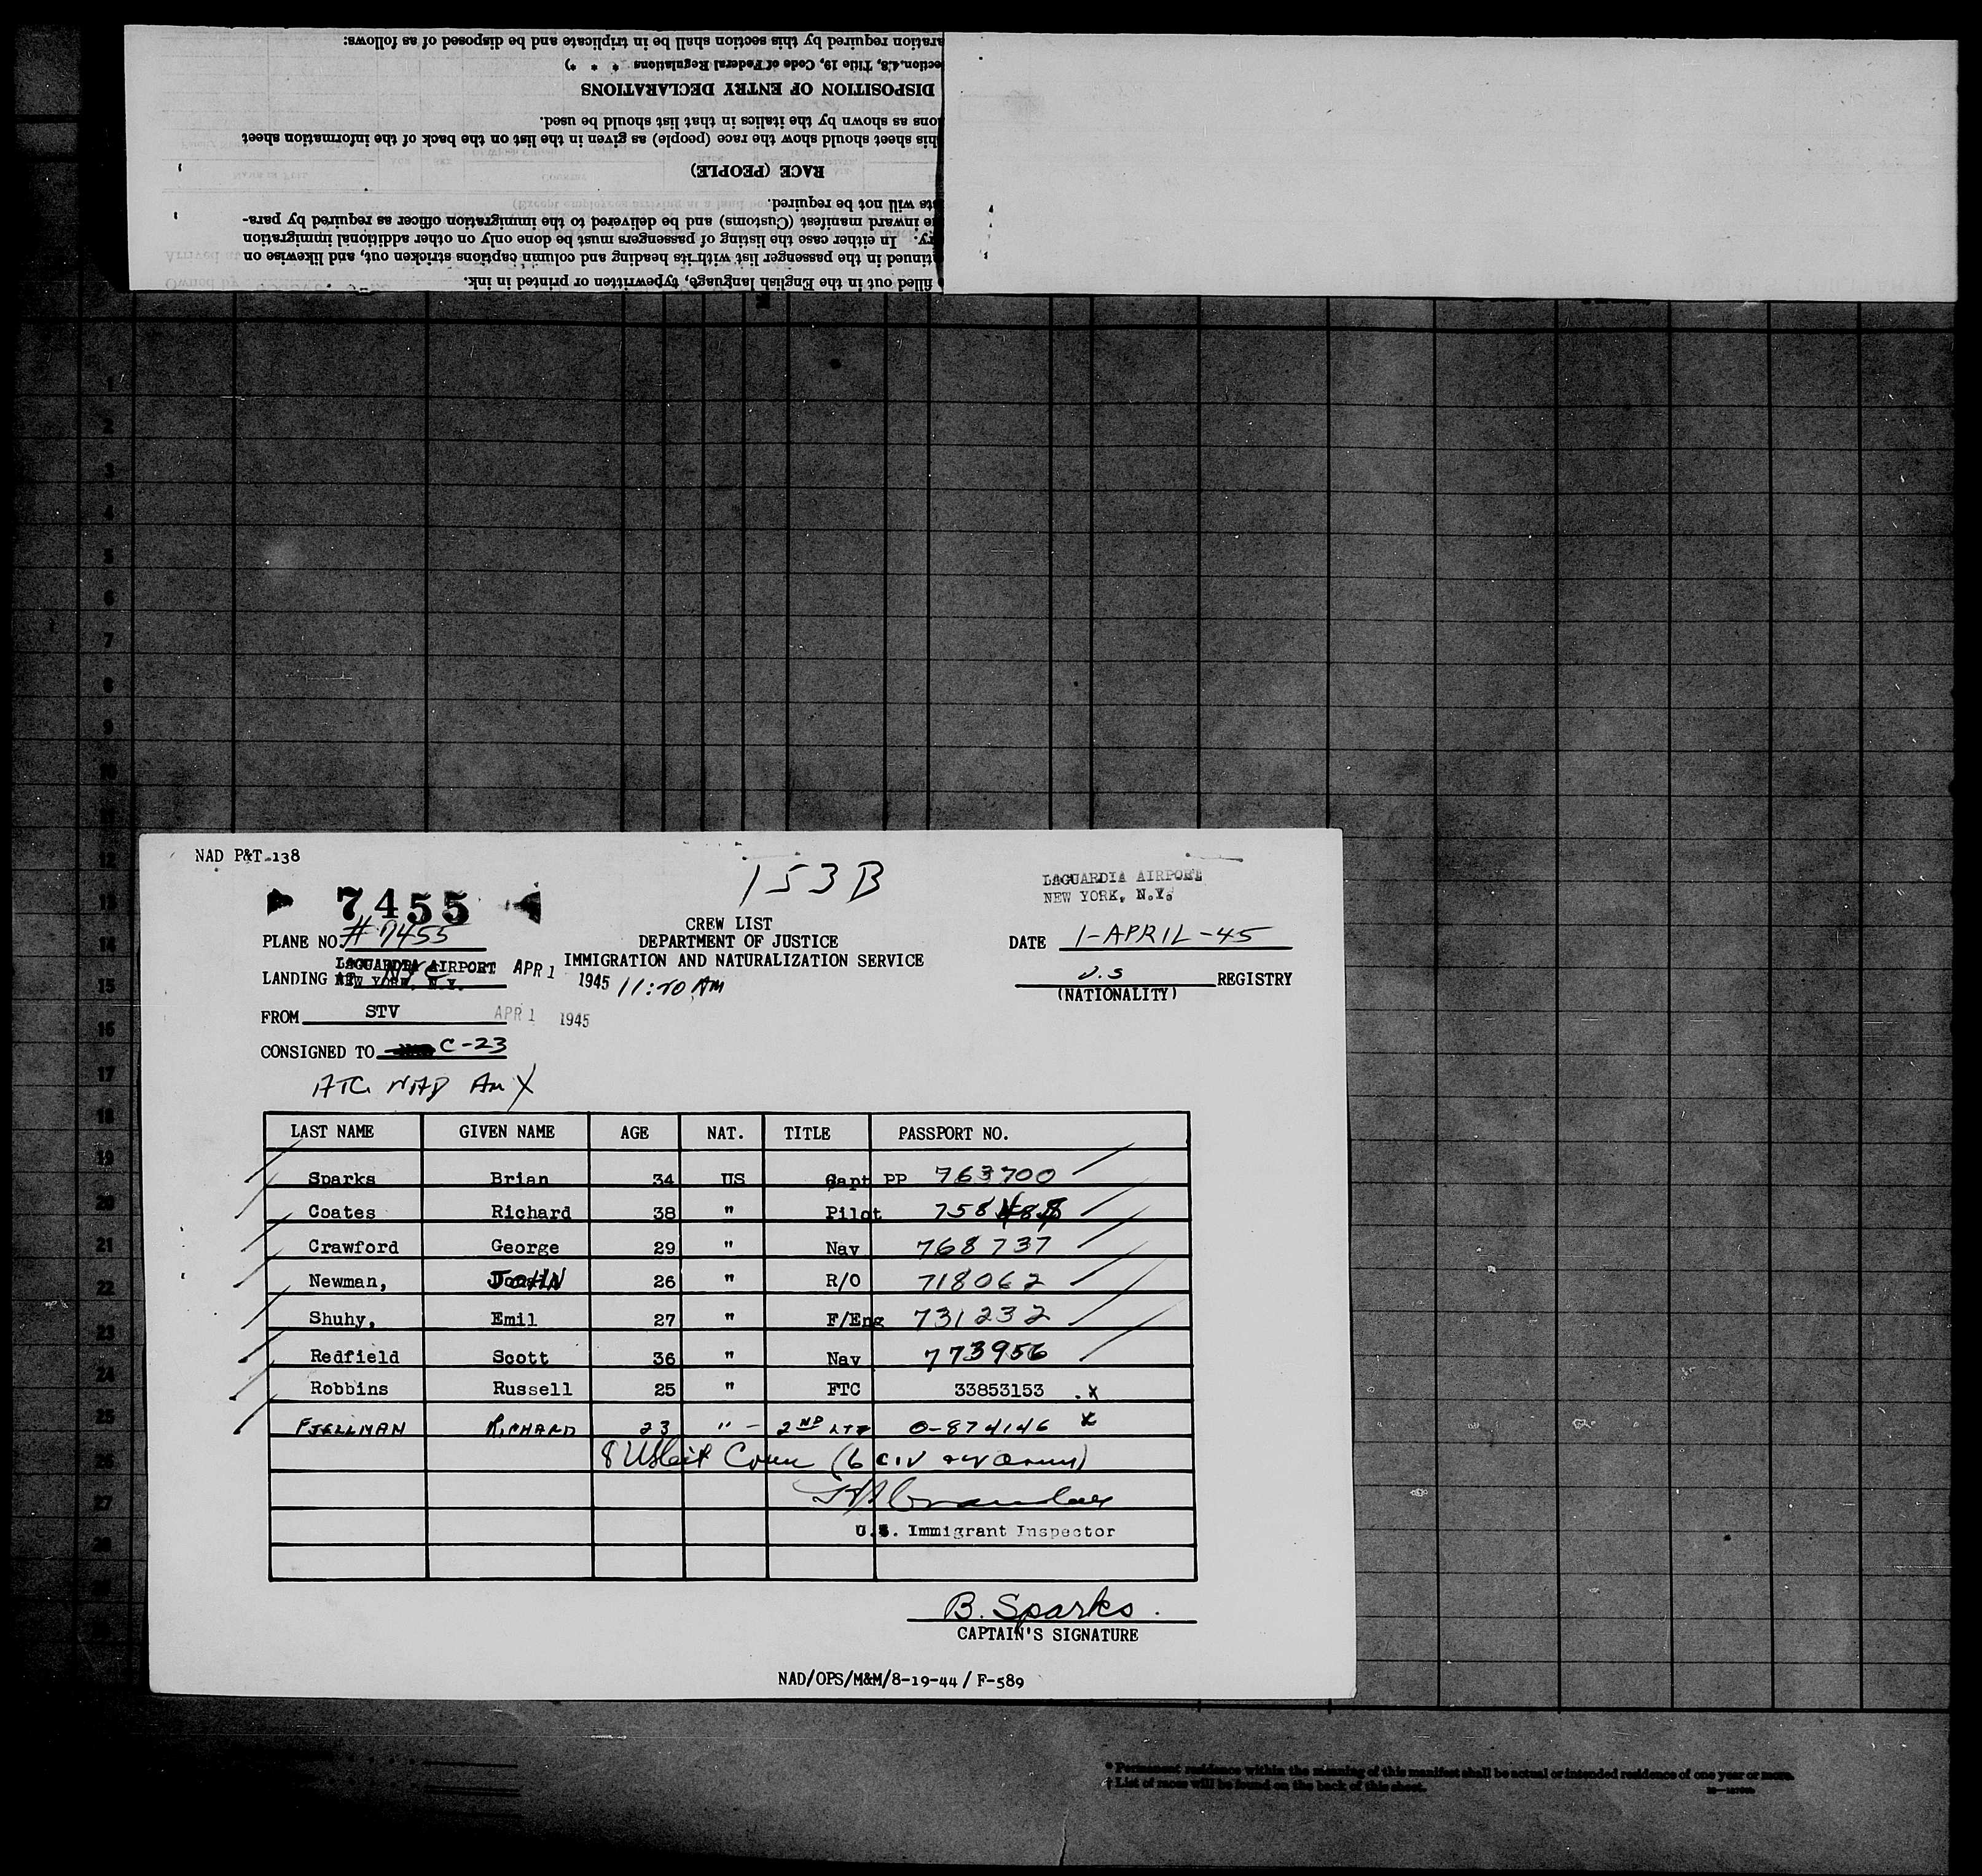 aration required by this section shall be in triplicate and be disposed of as follows:
ection 4.8, Title 19, Code of Federal Regulations * * *)
DISPOSITION OF ENTRY DECLARATIONS
ons as shown by the italics in that list should be used.
his sheet should show the race (people) as given in the list on the back of the information sheet
RACE (PEOPLE)
sts will not be required.
e inward manifest (Customs) and be delivered to the immigration officer as required by para-
ry. In either case the listing of passengers must be done only on other additional immigration
tinued in the passenger list with its heading and column captions stricken out, and likewise on
filled out in the English language, typewritten or printed in ink.
1
2
3
4
5
6
7
8
9
10
11
12
13
14
15
16
17
18
19
20
21
22
23
24
25
26
27
28
NAD P&T-138
153B
LAGUARDIA AIRPORT
NEW YORK, N.Y.
7455
CREW LIST
PLANE NO. #7455
DEPARTMENT OF JUSTICE
DATE 1-APRIL-45
IMMIGRATION AND NATURALIZATION SERVICE
LANDING AT NYC
LAGUARDIA AIRPORT
NEW YORK, N.Y.
APR 1 1945 11:20 AM
U.S REGISTRY
(NATIONALITY)
FROM STV APR 1 1945
CONSIGNED TO C-23
ATC NAD
LAST NAME GIVEN NAME AGE NAT. TITLE PASSPORT NO.
Sparks Brian 34 US Capt PP 763700
Coates Richard 38 " Pilot 758
Crawford George 29 " Nav 768737
Newman, JOHN 26 " R/O 718062
Shuhy, Emil 27 " F/Eng 731232
Redfield Scott 36 " Nav 773956
Robbins Russell 25 " FTC 33853153 x
FJELLMAN RICHARD 23 " - 2ND LT 0-874146 x
8 US Cit (6 civ
U.S. Immigrant Inspector
B. Sparks.
CAPTAIN'S SIGNATURE
NAD/OPS/M&M/8-19-44/F-589
* Permanent residence within the meaning of this manifest shall be actual or intended residence of one year or more.
† List of races will be found on the back of this sheet.